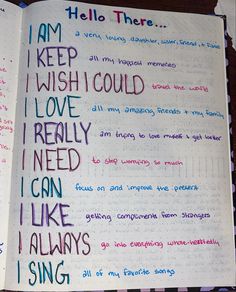 Hello There...
I AM a very loving daughter, sister, friend, &
I KEEP all my happy memories
I WISH I COULD travel the world
I LOVE all my amazing friends & my family
I REALLY am trying to love myself & get better
I NEED to stop worrying so much
I CAN focus on and improve the present
I LIKE getting compliments from strangers
I ALWAYS go into everything whole-heartedly
I SING all of my favorite songs